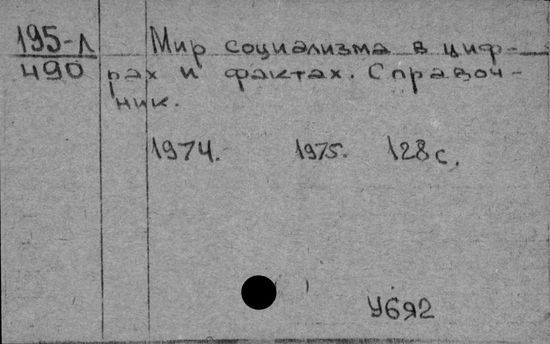 195-л
490
Мир социализма в циф-
рах и фактах. Справоч-
ник.
1974. 1975. 128 с.
У692